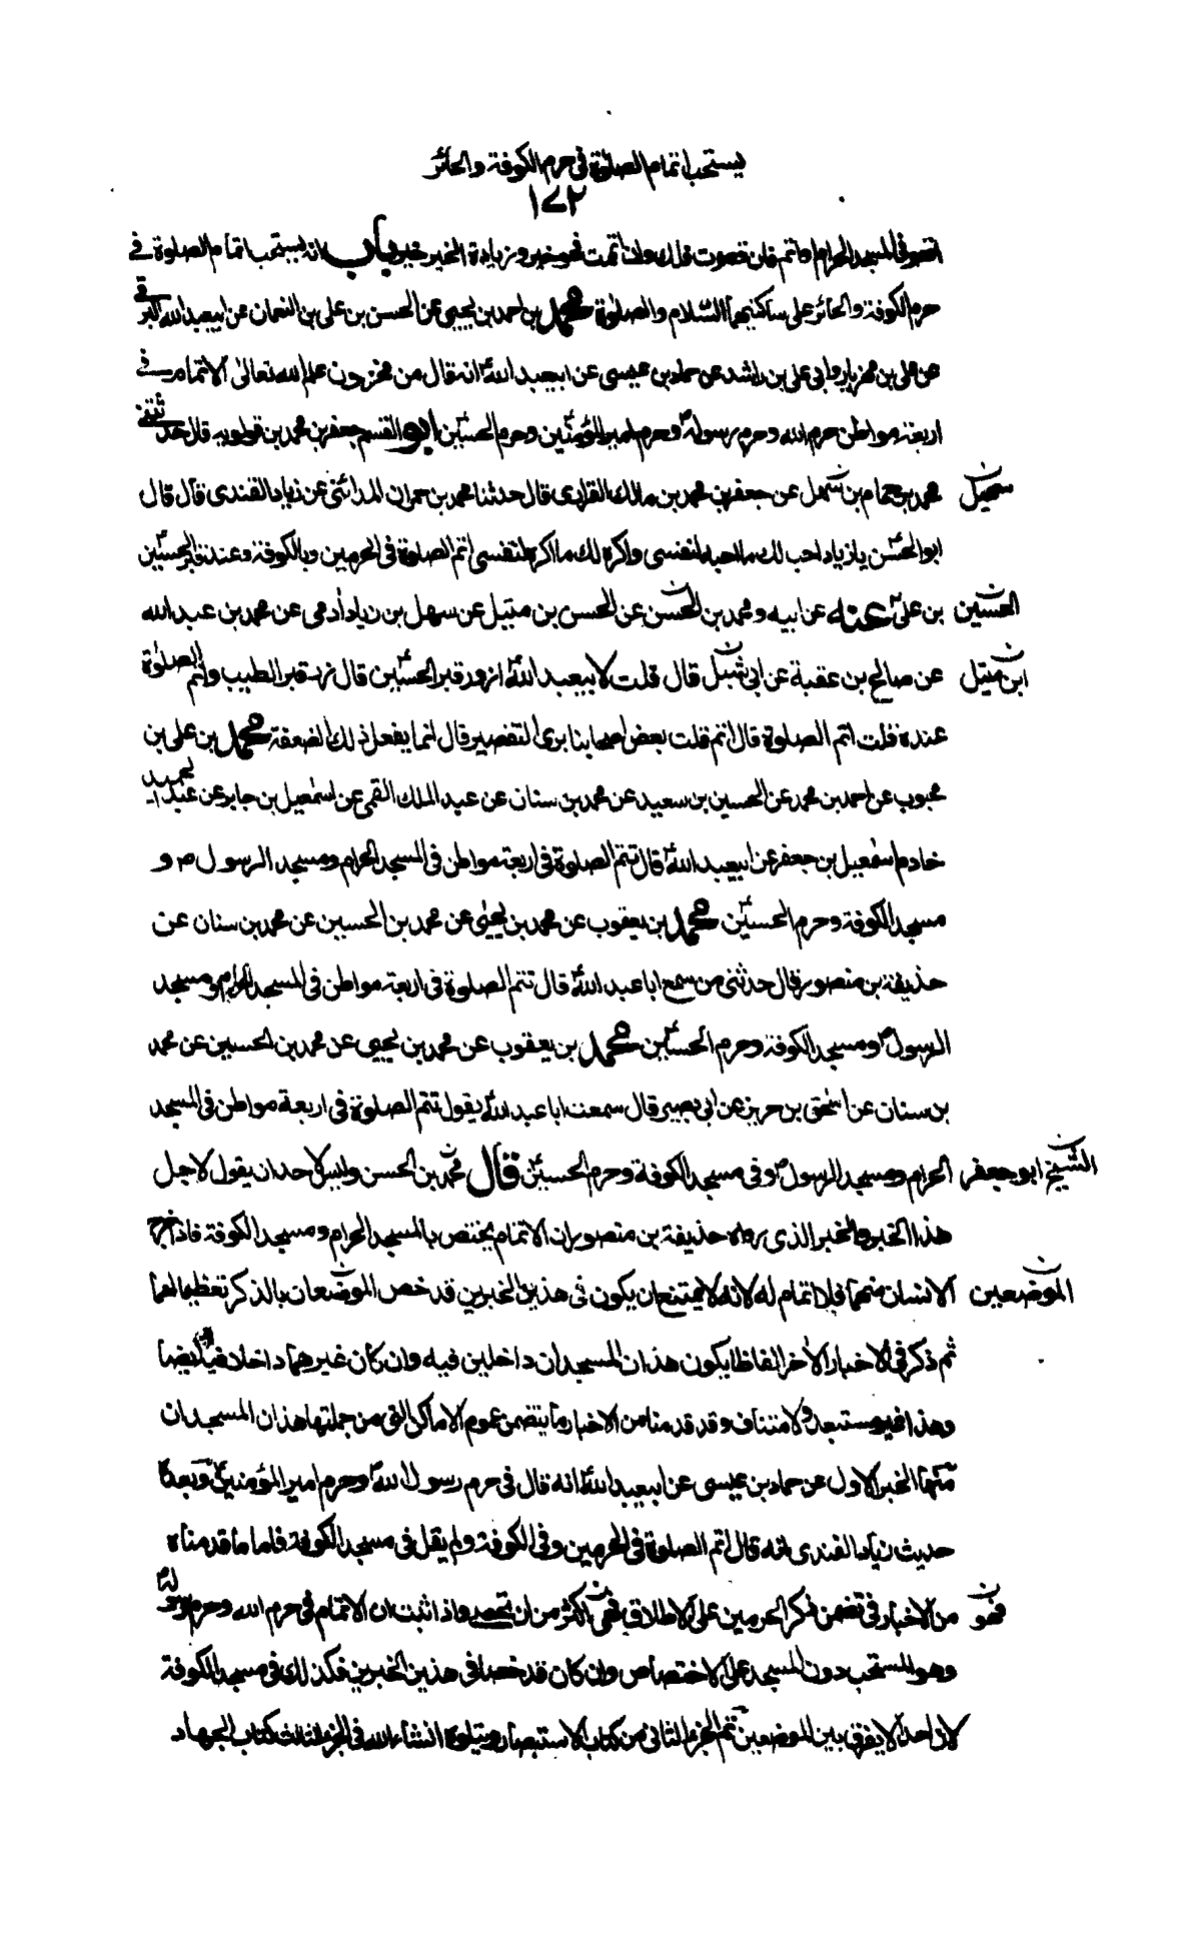 يستحب اتمام الصلوة في حرم الكوفة والحائر
١٧٢
اقصر في المسجد الحرام او اتم قال ان قصرت فلك وان اتممت فهو خير وزيادة الخير خير باب انه يستحب اتمام الصلوة في
حرم الكوفة والحائر على ساكنيهما السّلام والصلوة محمد بن احمد بن يحيى عن الحسن بن علي بن النعمان عن ابيعبد الله البرقي
عن علي بن مهزيار وابي علي بن راشد عن حماد بن عيسى عن ابيعبد اللهؑ انه قال من مخزون علم الله تعالى الاتمام في
اربعة مواطن حرم الله وحرم رسولهؐ وحرم امير المؤمنينؑ وحرم الحسينؑ ابو القسم جعفر بن محمد بن قولويه قال حدثني
محمد بن همام بن سهل عن جعفر بن محمد بن مالك الفزاري قال حدثنا محمد بن حمران المدائني عن زياد القندي قال قال
سهيل ن
ابو الحسنؑ يا زياد احب لك ما احب لنفسي واكره لك ما اكره لنفسي اتم الصلوة في الحرمين وبالكوفة وعند قبر الحسينؑ
بن عليؑ عنه عن ابيه ومحمد بن الحسن عن الحسن بن متيل عن سهل بن زياد أدمي عن محمد بن عبد الله
الحسين ن
عن صالح بن عقبة عن ابي شبل قال قلت لابيعبد اللهؑ ازور قبر الحسينؑ قال زر قبر الطيب واتم الصلوة
ابن متيل ن
عنده قلت اتم الصلوة قال اتم قلت بعض اصحابنا يرى التقصير قال انما يفعل ذلك الضعفة محمد بن علي بن
محبوب عن احمد بن محمد عن الحسين بن سعيد عن محمد بن سنان عن عبد الملك القمي عن اسمعيل بن جابر عن عبد الحميد
خادم اسمعيل بن جعفر عن ابيعبد اللهؑ قال تتم الصلوة في اربعة مواطن في المسجد الحرام ومسجد الرسول ص و
مسجد الكوفة وحرم الحسينؑ محمد بن يعقوب عن محمد بن يحيى عن محمد بن الحسين عن محمد بن سنان عن
حذيفة بن منصور قال حدثني من سمع ابا عبد اللهؑ قال تتم الصلوة في اربعة مواطن في المسجد الحرام ومسجد
الرسولؐ ومسجد الكوفة وحرم الحسينؑ محمد بن يعقوب عن محمد بن يحيى عن محمد بن الحسين عن محمد
بن سنان عن اسحق بن حريز عن ابي بصير قال سمعت ابا عبد اللهؑ يقول تتم الصلوة في اربعة مواطن في المسجد
الحرام ومسجد الرسولؐ وفي مسجد الكوفة وحرم الحسينؑ قال محمد بن الحسن وليس لاحد ان يقول لاجل
الشيخ ابو جعفر ن
هذا الخبر والخبر الذي رواه حذيفة بن منصور ان الاتمام يختص بالمسجد الحرام ومسجد الكوفة فاذا خرج
الانسان منهما فلا اتمام له لانه لا يمتنع ان يكون في هذين الخبرين قد خص الموضعان بالذكر تعظيما لهما
الموضعين ن
ثم ذكر في الاخبار الاخر الفاظا يكون هذان المسجدان داخلين فيه وان كان غيرهما داخلا فيه ايضا
وهذا غير مستبعد ولا متناف وقد قدمنا من الاخبار ما يتضمن عموم الاماكن التي من جملتها هذان المسجدان
منها الخبر الاول عن حماد بن عيسى عن ابيعبد اللهؑ انه قال في حرم رسول اللهؐ وحرم امير المؤمنينؑ وبعده
حديث زياد القندي انه قال اتم الصلوة في الحرمين وفي الكوفة ولم يقل في مسجد الكوفة فاما ما قدمناه
من الاخبار في تضمن ذكر الحرمين على الاطلاق فهي اكثر من ان تحصى واذا ثبت ان الاتمام في حرم الله وحرم رسوله
فهو ن
وهو المستحب دون المسجد على الاختصاص وان كان قد خصا في هذين الخبرين فكذلك في مسجد الكوفة
لان احدا لا يفرق بين الموضعين تم الجزء الثاني من كتاب الاستبصار ويتلوه انشاء الله في الجزء الثالث كتاب الجهاد